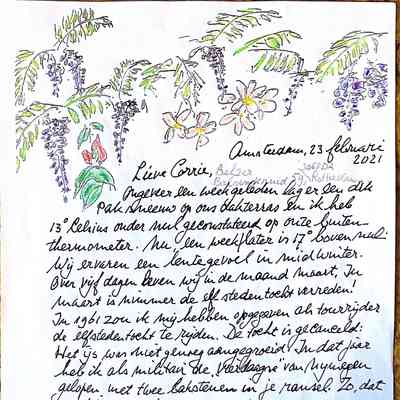 Amsterdam, 23 februari
2021
Lieve Corrie,
Ongeveer een week geleden lag er een dik
pak sneeuw op ons dakterras en ik heb
13° Celsius onder nul geconstateerd op onze buiten
thermometer. Nu een week later is 17° boven nul.
Wij ervaren een lentegevoel in midwinter.
Over vijf dagen leven wij in de maand maart. In
maart is nimmer de elfstedentocht verreden!
In 1961 zou ik mij hebben opgegeven als tourrijder
de elfstedentocht te rijden. De tocht is gecanceld:
Het ijs was niet genoeg aangegroeid. In dat jaar
heb ik als militair de "vierdaagse" van Nijmegen
gelopen met twee bakstenen in je ransel. Zo, dat